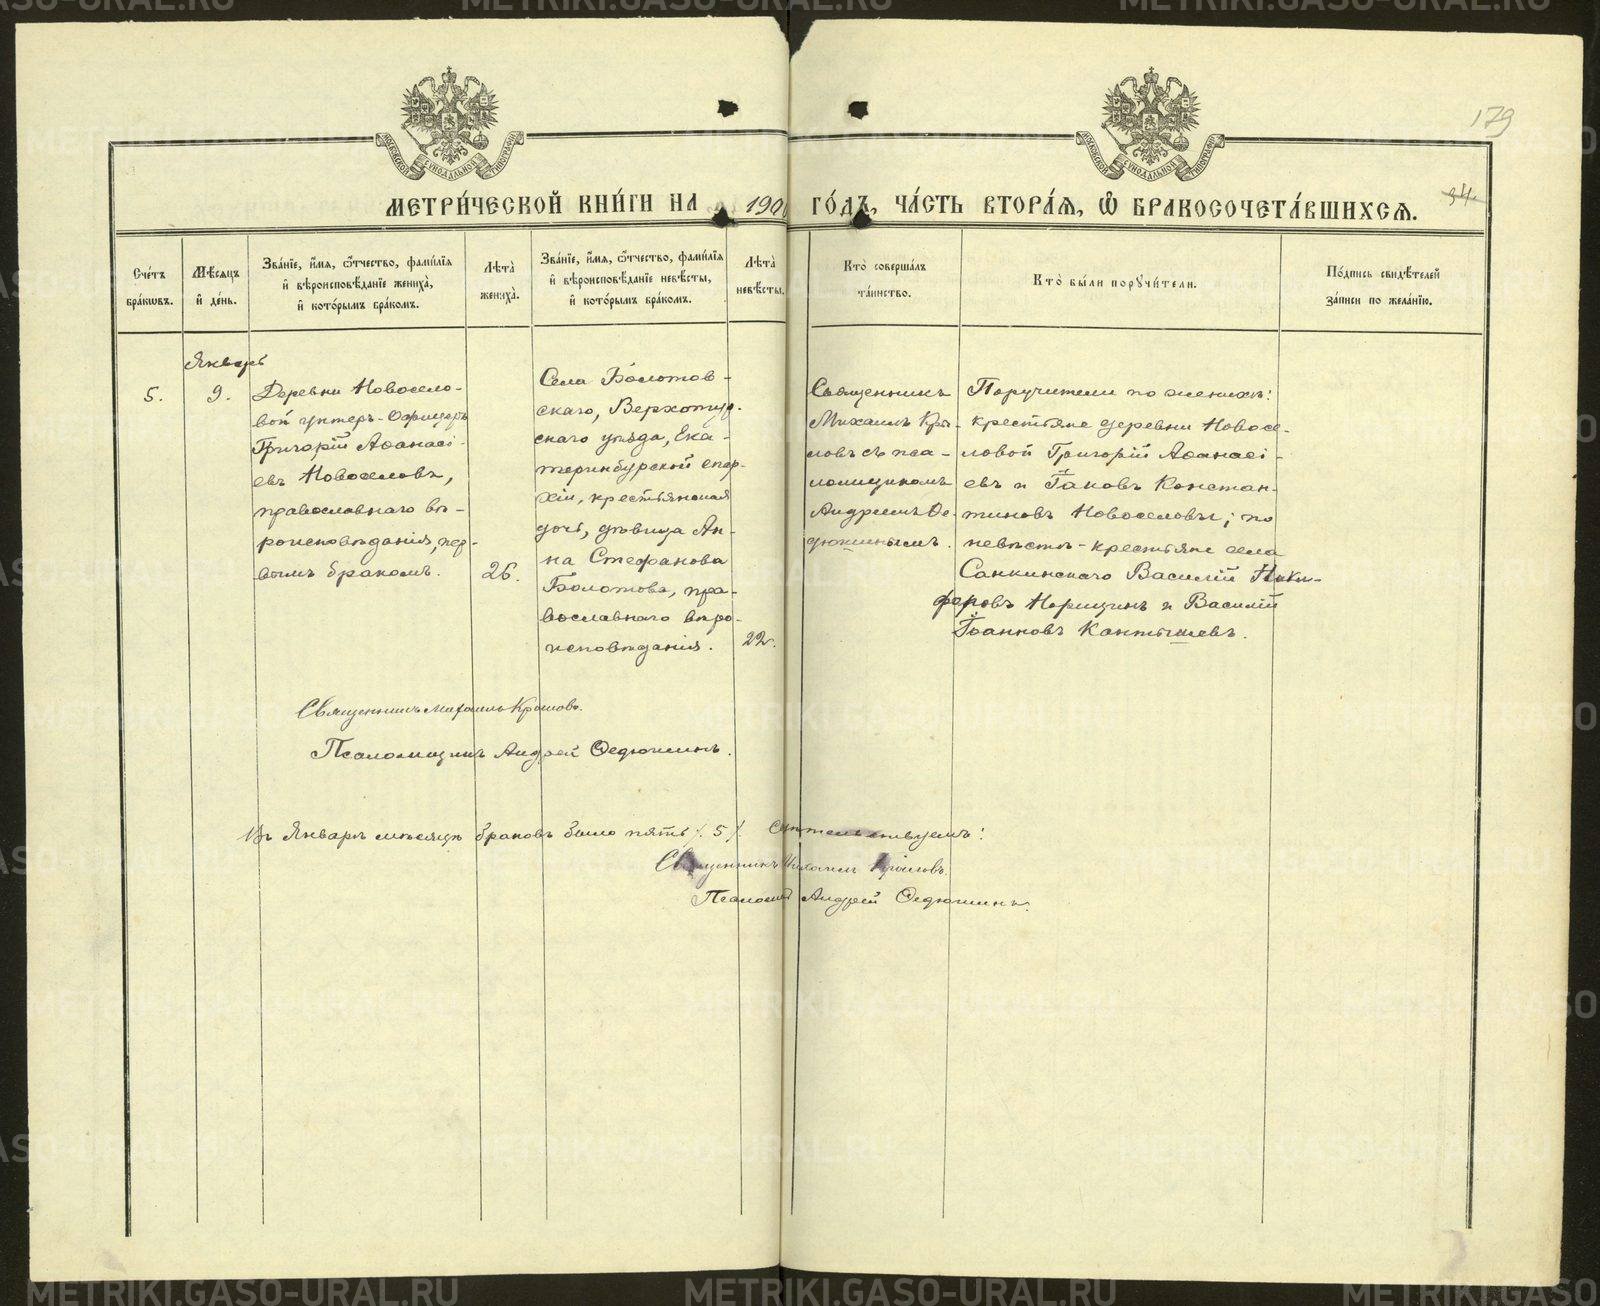 179
34.
МЕТРИ́ЧЕСКОЙ КНИ́ГИ НА 190 ГО́ДЪ, ЧА́СТЬ ВТОРА́Я, Ѽ БРАКОСОЧЕТА́ВШИХСЯ.
МОСКОВСКОЙ СѴНОДАЛЬНОЙ ТИПОГРАФІИ
МОСКОВСКОЙ СѴНОДАЛЬНОЙ ТИПОГРАФІИ
Сче́тъ
бра́кѡвъ.
Мѣ́сяцъ
и҆ де́нь.
Зва́нїе, и҆́мя, ѻ҆́тчество, фами́лїя
и҆ вѣроисповѣ́данїе жениха̀,
и҆ кото́рымъ бра́комъ.
Лѣ́та
жениха̀.
Зва́нїе, и҆́мя, ѻ҆́тчество, фами́лїя
и҆ вѣроисповѣ́данїе невѣ́сты,
и҆ кото́рымъ бра́комъ.
Лѣ́та
невѣ́сты.
Кто̀ соверша́лъ
та́инство.
Кто̀ бы́ли порꙋчи́тели.
По́дпись свидѣ́телей
за́писи по жела́нїю.
Январь
5.
9.
Деревни Новосело-
вой унтеръ-офицеръ
Григорій Аѳанасі-
евъ Новоселовъ,
православнаго вѣ-
роисповѣданія, пер-
вымъ бракомъ.
26.
Села Болотов-
скаго, Верхотур-
скаго уѣзда, Ека-
теринбурской епар-
хіи, крестьянская
дочь, дѣвица Ан-
на Стефанова
Болотова, пра-
вославнаго вѣро-
исповѣданія.
22.
Священникъ
Михаилъ Кры-
ловъ съ пса-
ломщикомъ
Андреемъ Ѳе-
дюшинымъ.
Поручители по женихѣ:
крестьяне деревни Новосе-
ловой Григорій Аѳанасі-
евъ и Іаковъ Констан-
тиновъ Новоселовы; по
невѣстѣ - крестьяне села
Санкинскаго Василій Ники-
форовъ Норицинъ и Василій
Іоанновъ Кантышевъ.
Священникъ Михаилъ Крыловъ.
Псаломщикъ Андрей Ѳедюшинъ.
Въ Январѣ мѣсяцѣ браковъ было пять /. 5 /.
Священникъ Михаилъ Крыловъ.
Андрей Ѳедюшинъ.
METRIKI.GASO-URAL.RU